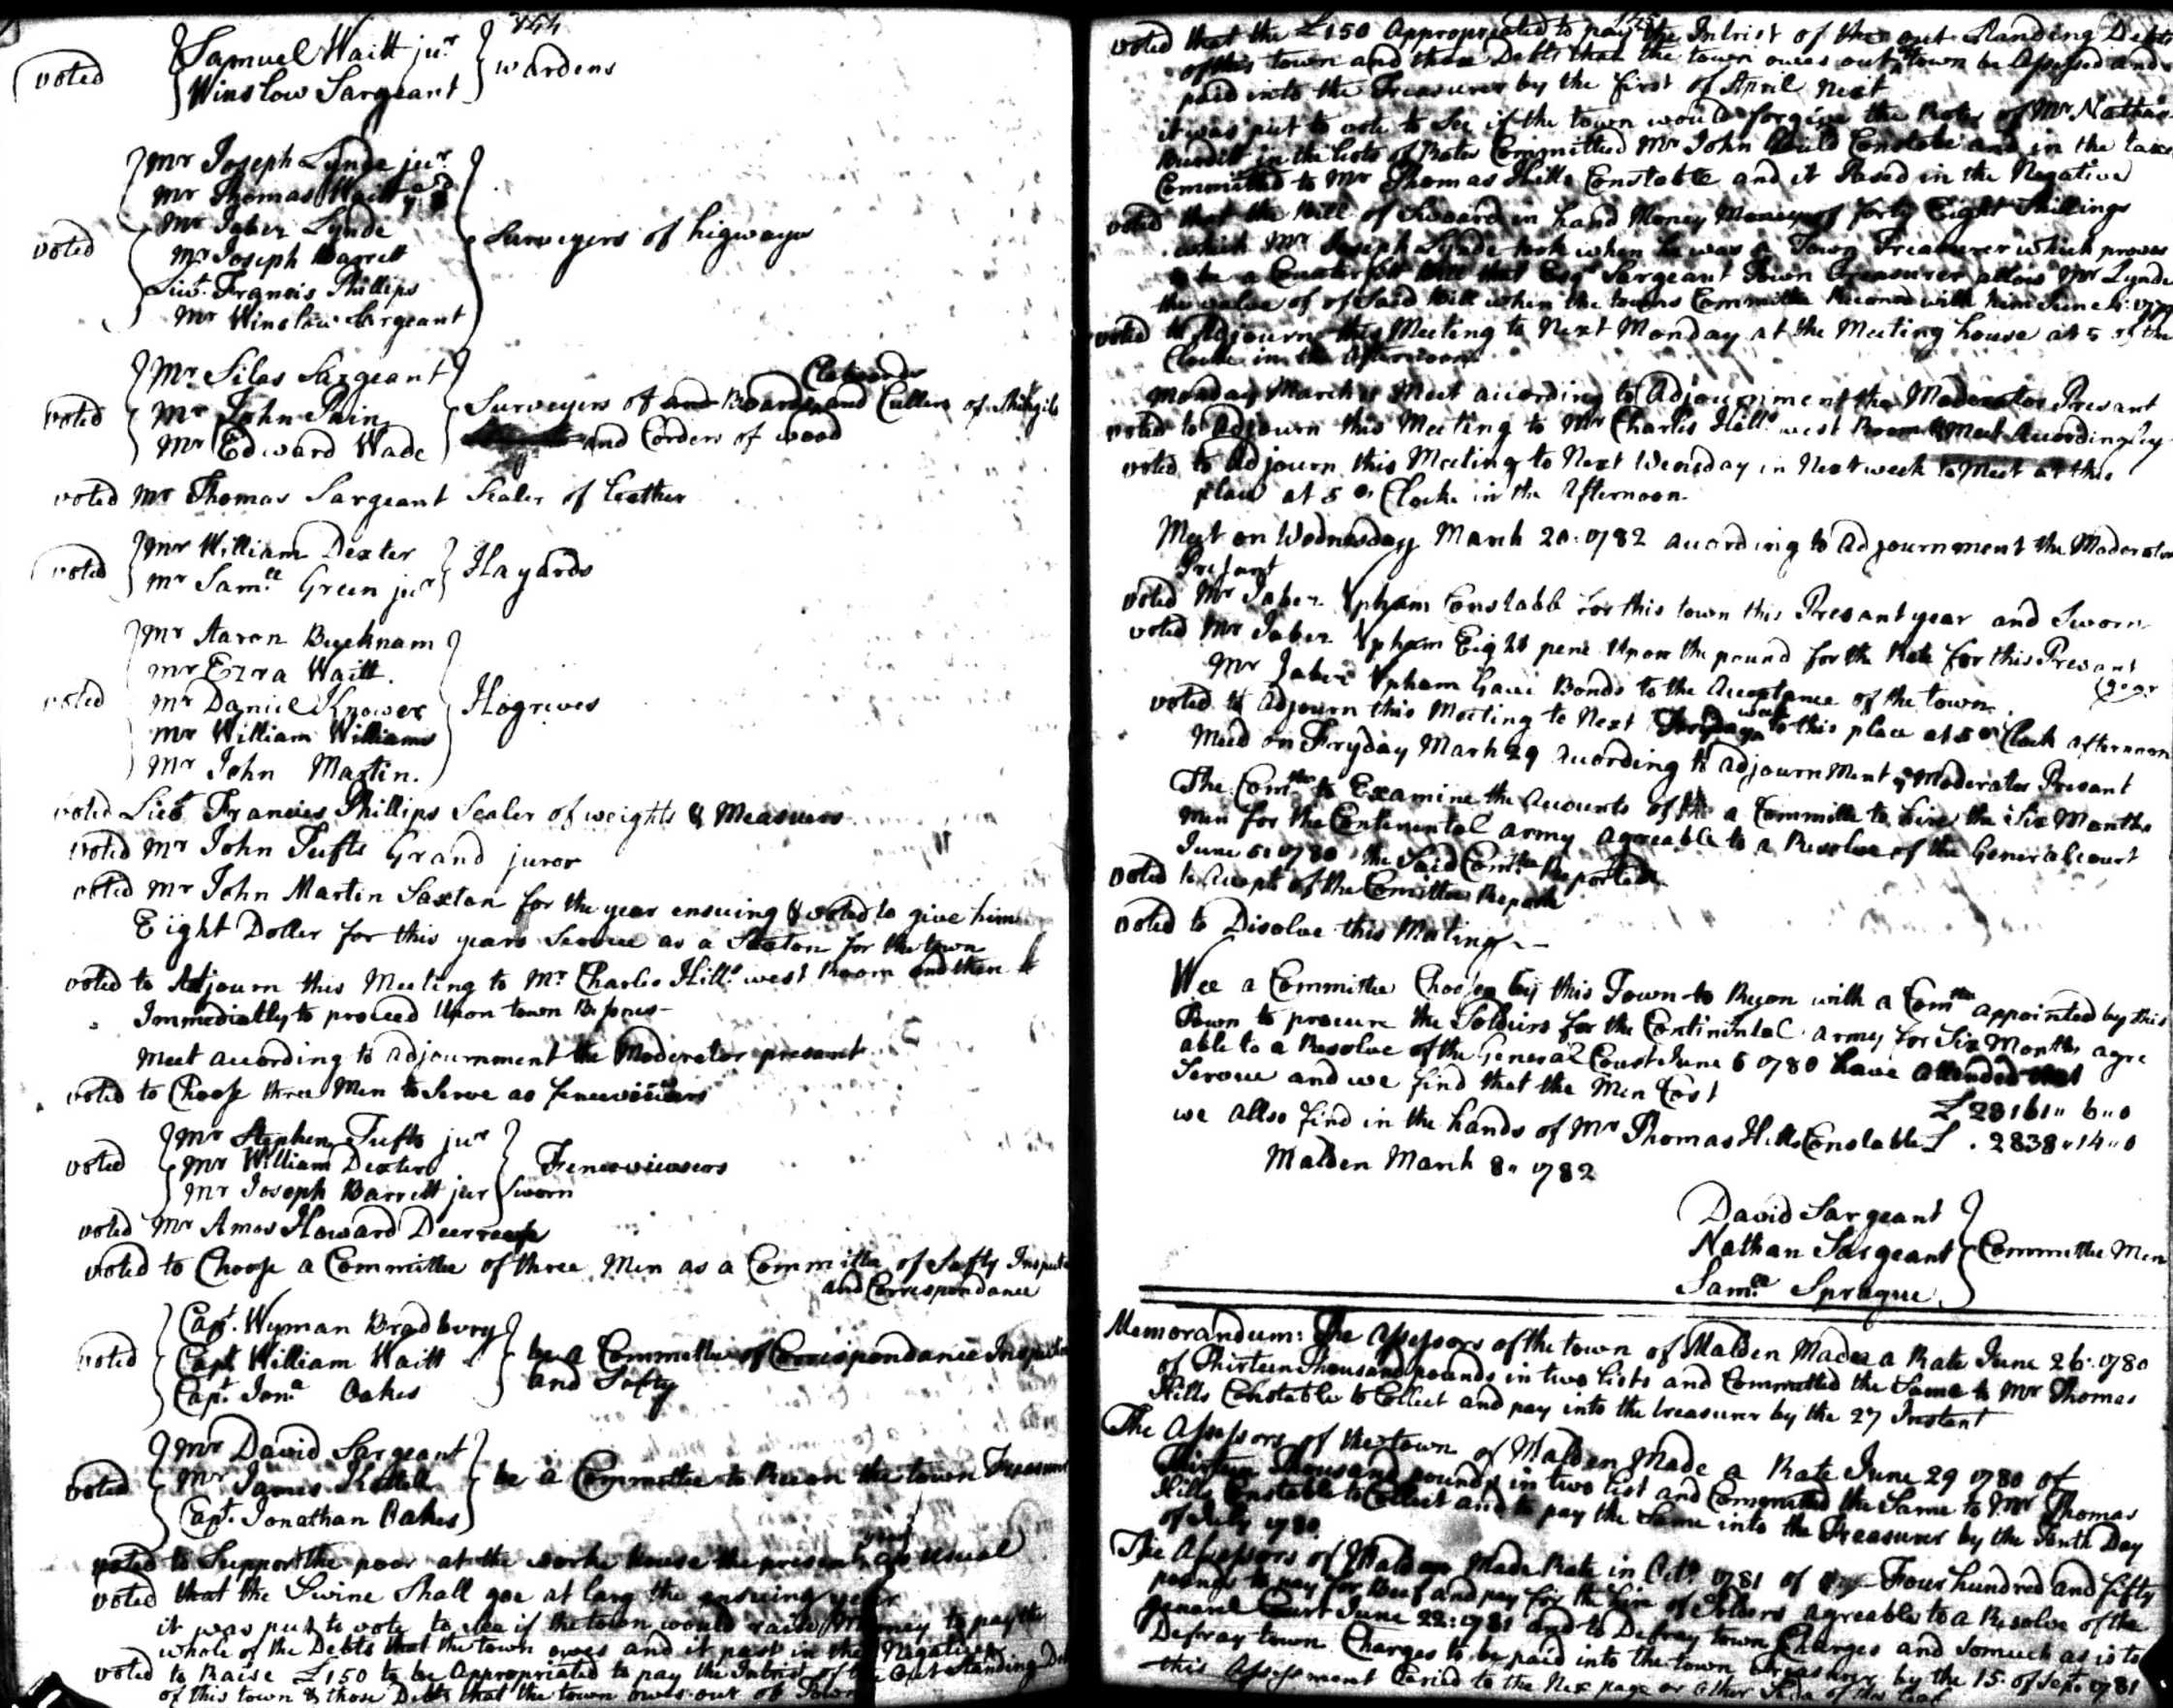 344
voted
Samuel Waitt jur
Winslow Sargeant
wardens
voted
Mr Joseph Lynde jur
Mr Thomas Waitt
Mr Jabez Lynde
Mr Joseph Barrett
Liut. Francis Phillips
Mr Winslow Sargeant
Surveyers of higways
voted
Mr Silas Sargeant
Mr John Pain
Mr Edward Wade
Claboards
Surveyers of and Boards and Cullers of Shingils
and Corders of wood
voted Mr Thomas Sargeant Sealer of Leather
voted
Mr William Dexter
Mr Samll Green jur
Hayards
voted
Mr Aaron Bucknam
mr Ezra Waitt.
mr Daniel Knower
mr William Williams
Mr John Martin.
Hogreves
voted Lieut Francies Phillips Sealer of weights & Measures
voted Mr John Tufts Grand juror
voted Mr John Martin Saxton for the year ensuing & voted to give him
Eight Doller for this years Service as a Sexton for the town
voted to Adjourn this Meeting to Mr Charles Hills west Room and then
Immediatly to proceed Upon town Bisnes
Meet according to adjournment the Moderator presant
voted to Choose three Men to Serve as fencevicuers
voted
Mr Stephen Tufts jur
Mr William Dexter
Mr Joseph Barrett jur
Fencevieuers
Sworn
voted Mr Amos Howard Deerreefe
voted to Choose a Committee of three Men as a Committee of Safty
and Correspondance
voted
Capt. Wyman Bradbury
Capt William Waitt
Capt. Jona Oakes
be a Committee of Correspondance
and Safty
voted
Mr David Sargeant
Mr James Kettell
Capt. Jonathan Oakes
be a Committee to Recon the town Treasurer
year
voted to Support the poor at the worke house the present as usual
voted that the Swine Shall goe at larg the ensuing year
it was put to vote to see if the town would raise Money to pay the
whole of the Debts that the town owes and it past in the Negative
voted to Raise £150 to be Appropriated to pay the Intrest of the Out Standing
of this town & those Debts that the town owes out of Town
voted that the £150 Appropriated to pay the Intrist of the out Standing Debts
of this town and those Debts that the town owes out town be Assessed and
paid into the Treasurer by the first of April Next
it was put to vote to See if the town would forgive the Rates of Mr Nathan
Burditt in the lists of Rates Committed Mr John Gould Constable and in the taxes
Committed to Mr Thomas Hills Constable and it Pased in the Negative
voted that the Bill of Money of forty Eight Shillings
which Mr Joseph Lynde took when he was a Town Treasurer which proves
to be a Counterfitt Bill that Esqr Sargeant Town Treasurer allow Mr Lynde
the value of of Said Bill when the towns Committee Reconed with him June
voted to Adjourn this Meeting to Next Monday at the Meeting house at 5 of the
Clocke in the Afternoon
Monday March Meet according to Adjournment the Moderator Presant
voted to Adjourn this Meeting to Mr Charles Hills west Room & Meet Accordingley
voted to Adjourn this Meeting to Next Wensday in Next week to Meet at this
place at 5 o Clocke in the Afternoon
Meet on Wednesday March 20. 1782 according to adjournment the Moderator
Presant
voted Mr Jabez Upham Constabb for this town this Presant year and Sworn
voted Mr Jabez Upham Eight penc Upon the pound for the Rate for this Presant
year
Mr Jabez Upham Gave Bonds to the Acceptance of the town
week
voted to Adjourn this Meeting to Next to this place at 5 o Clock afternoon
Meed on Fryday March 29 According to adjournMent ye Moderator Presant
The Comtte to Examine the Accounts of the a Committe to hire the Six Months
Men for the Continental army agreable to a Resolve of the General court
June 5: 1780 the Said Comtte Reported
voted to Accept of the Comittee Report
voted to Disolve this Meeting
Wee a Committee Choosen by this Town to Recon with a Comtte appointed by this
Town to procure the Soldiers for the Continintal army for Six Months agre
able to a Resolve of the General Court June 5 1780 have attended that
Service and we find that the Men Cost £28161" 6"0
we allso find in the hands of Mr Thomas Hills Constable £. 2838"14"0
Malden March 8" 1782
David Sargeant
Nathan Sargeant
Samll Sprague
Committe Men
Memorandum: The Assessors of the town of Malden Made a Rate June 26. 1780
of Thirteen Thousand pounds in two lists and Committed the Same to Mr Thomas
Hills Constable to Collect and pay into the treasurer by the 27 Instant
The Assessors of the town of Malden Made a Rate June 29 1780 of
Thirteen Thousand pounds in two list and Committed the Same to Mr Thomas
Hills Constable to Collect and to pay the Same into the Treasurer by the Tenth Day
of July 1780
The Assessors of Malden Made Rate in 1781 of Four hundred and fifty
pounds to pay for Beef and pay for the hire of Solders agreable to a Resolve of the
General Court June 22: 1781 and to Defray town Charges and Somuch as is to
Defray town Charges to be paid into the town treasurer by the 15 of Sept. 1781
this Assessment Caried to the Nex page or other Side of this leaf